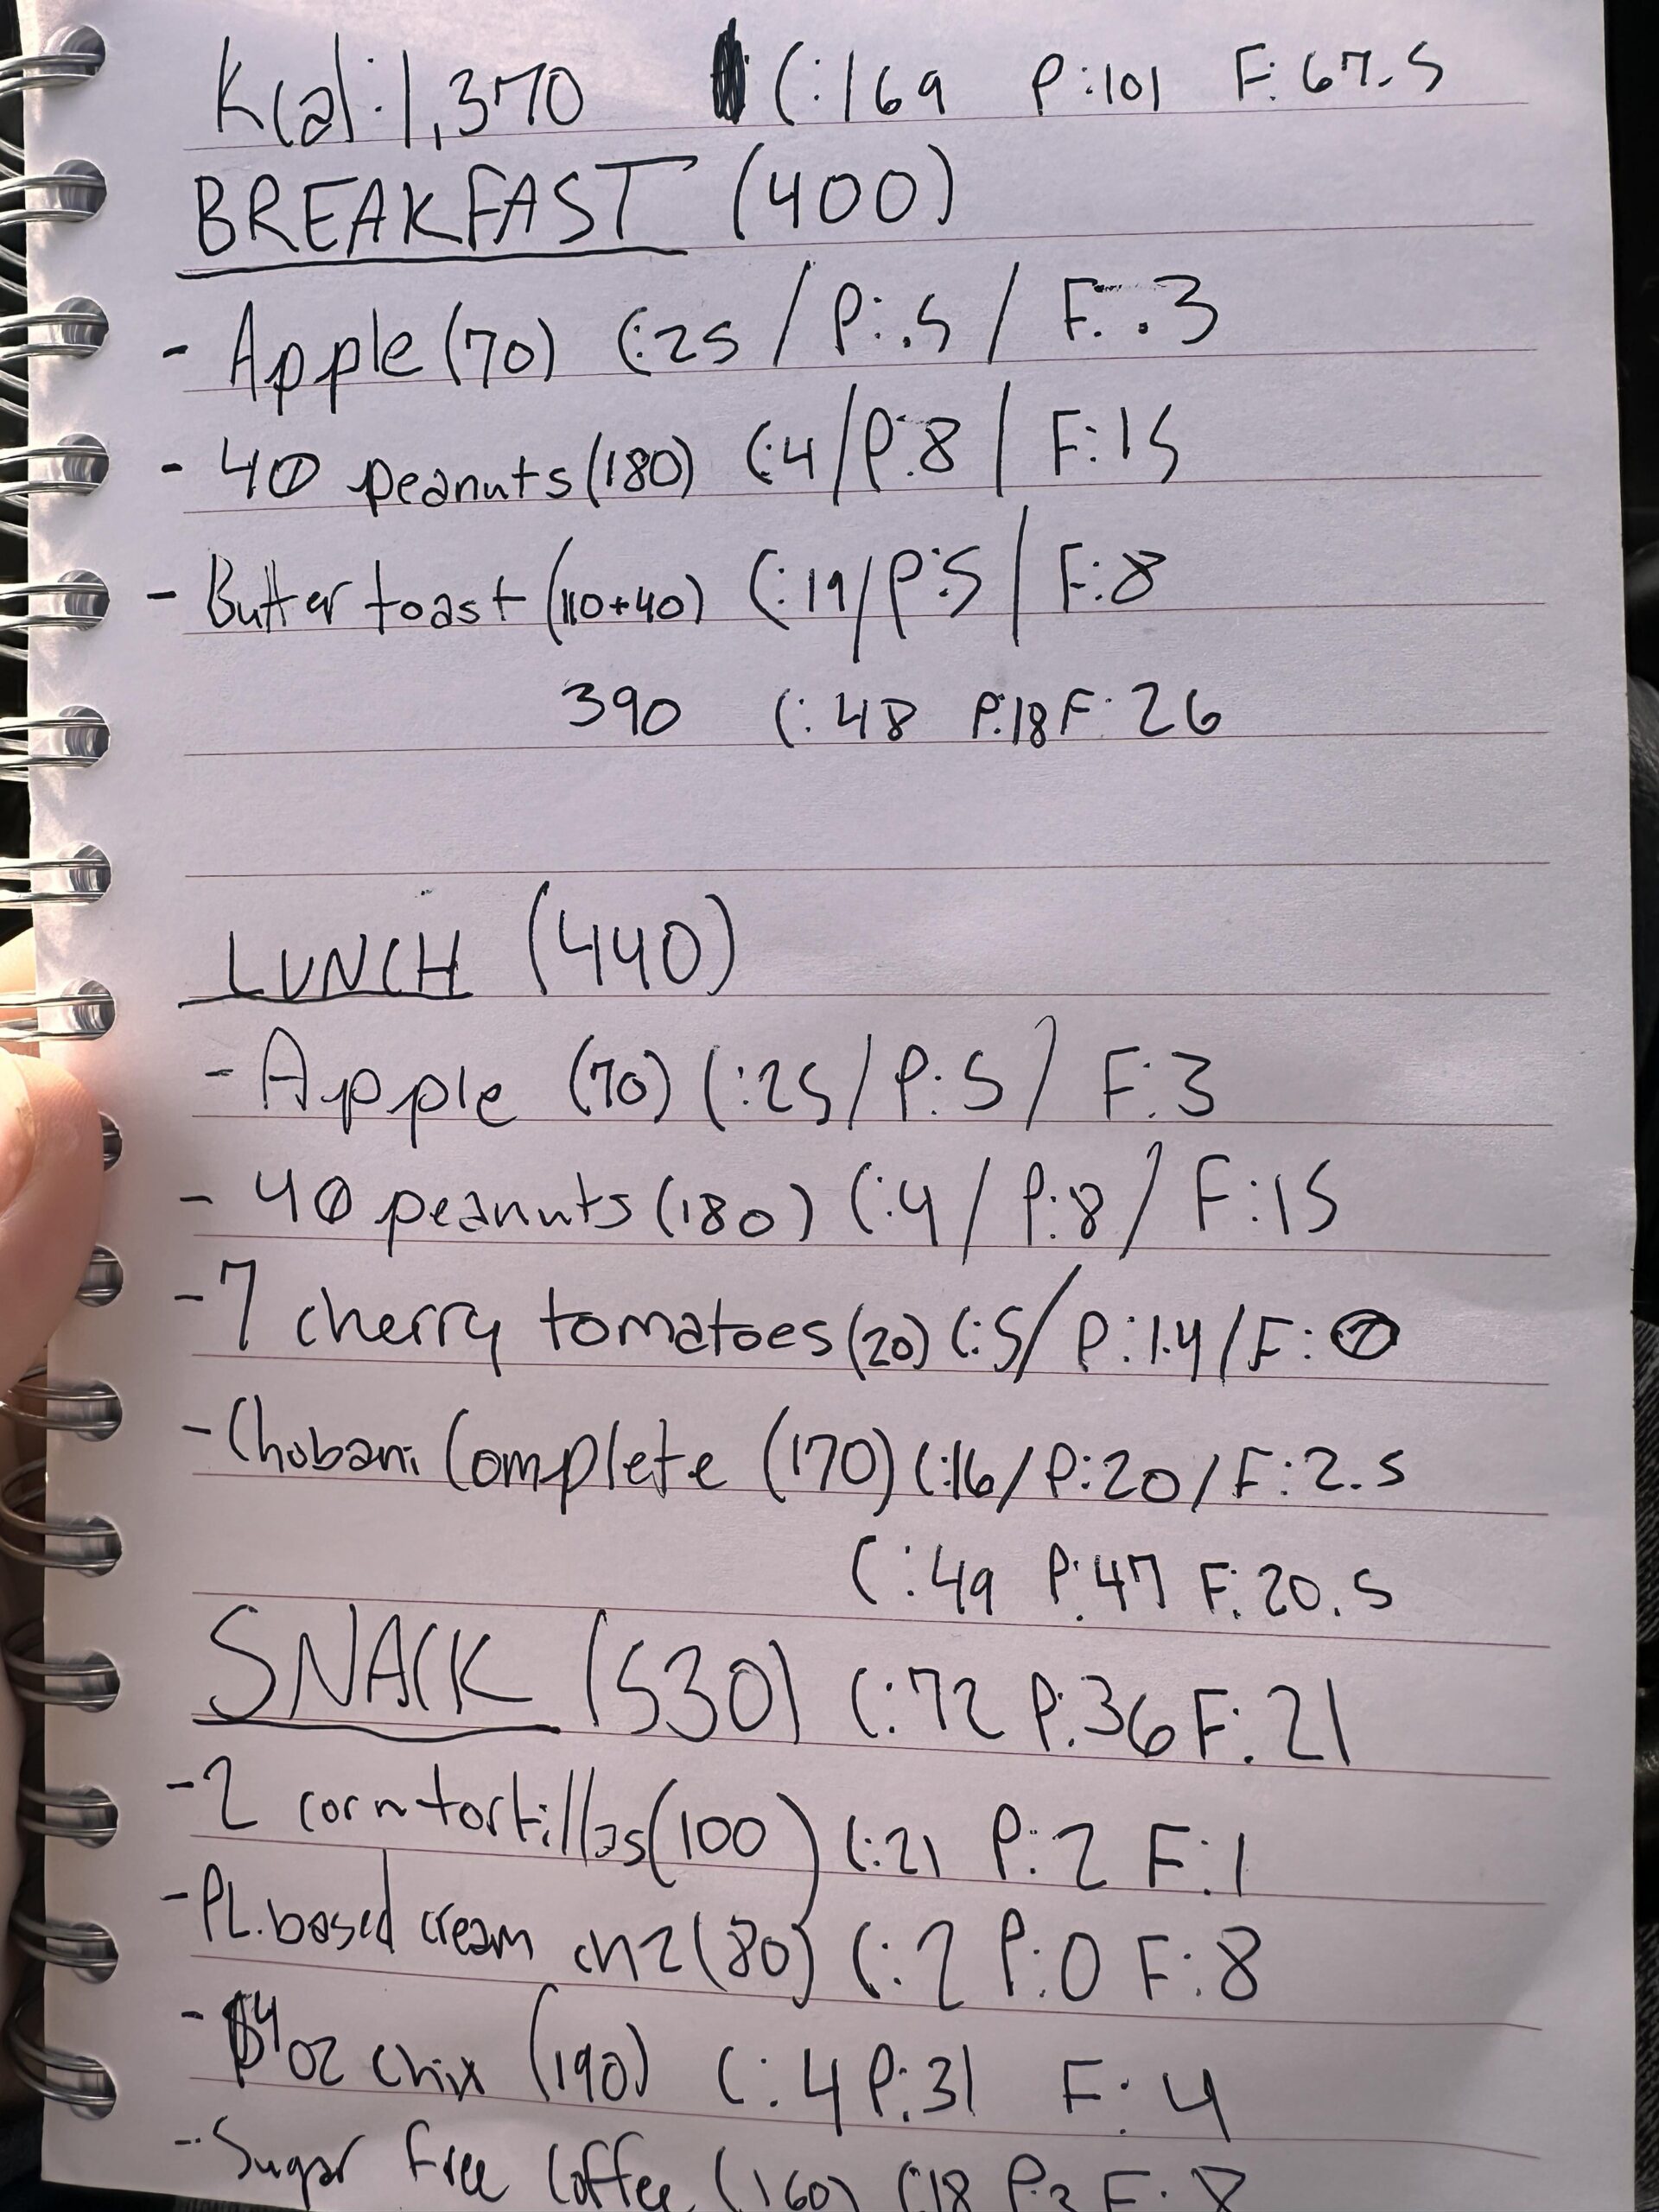 Kcal: 1,370 C: 169 P: 101 F: 67.5
BREAKFAST (400)
- Apple (70) C: 25 / P: .5 / F: .3
- 40 peanuts (180) C: 4 / P: 8 / F: 15
- Butter toast (110+40) C: 19 / P: 5 / F: 8
390 C: 48 P: 18 F: 26
LUNCH (440)
- Apple (70) C: 25 / P: 5 / F: 3
- 40 peanuts (180) C: 4 / P: 8 / F: 15
- 7 cherry tomatoes (20) C: 5 / P: 1.4 / F: 0
- Chobani Complete (170) C: 16 / P: 20 / F: 2.5
C: 49 P: 47 F: 20.5
SNACK (530) C: 72 P: 36 F: 21
- 2 corn tortillas (100) C: 21 P: 2 F: 1
- PL. based cream chz (80) C: 2 P: 0 F: 8
- 4 oz chix (190) C: 4 P: 31 F: 4
- Sugar free coffee (160) C: 18 P: F: 8